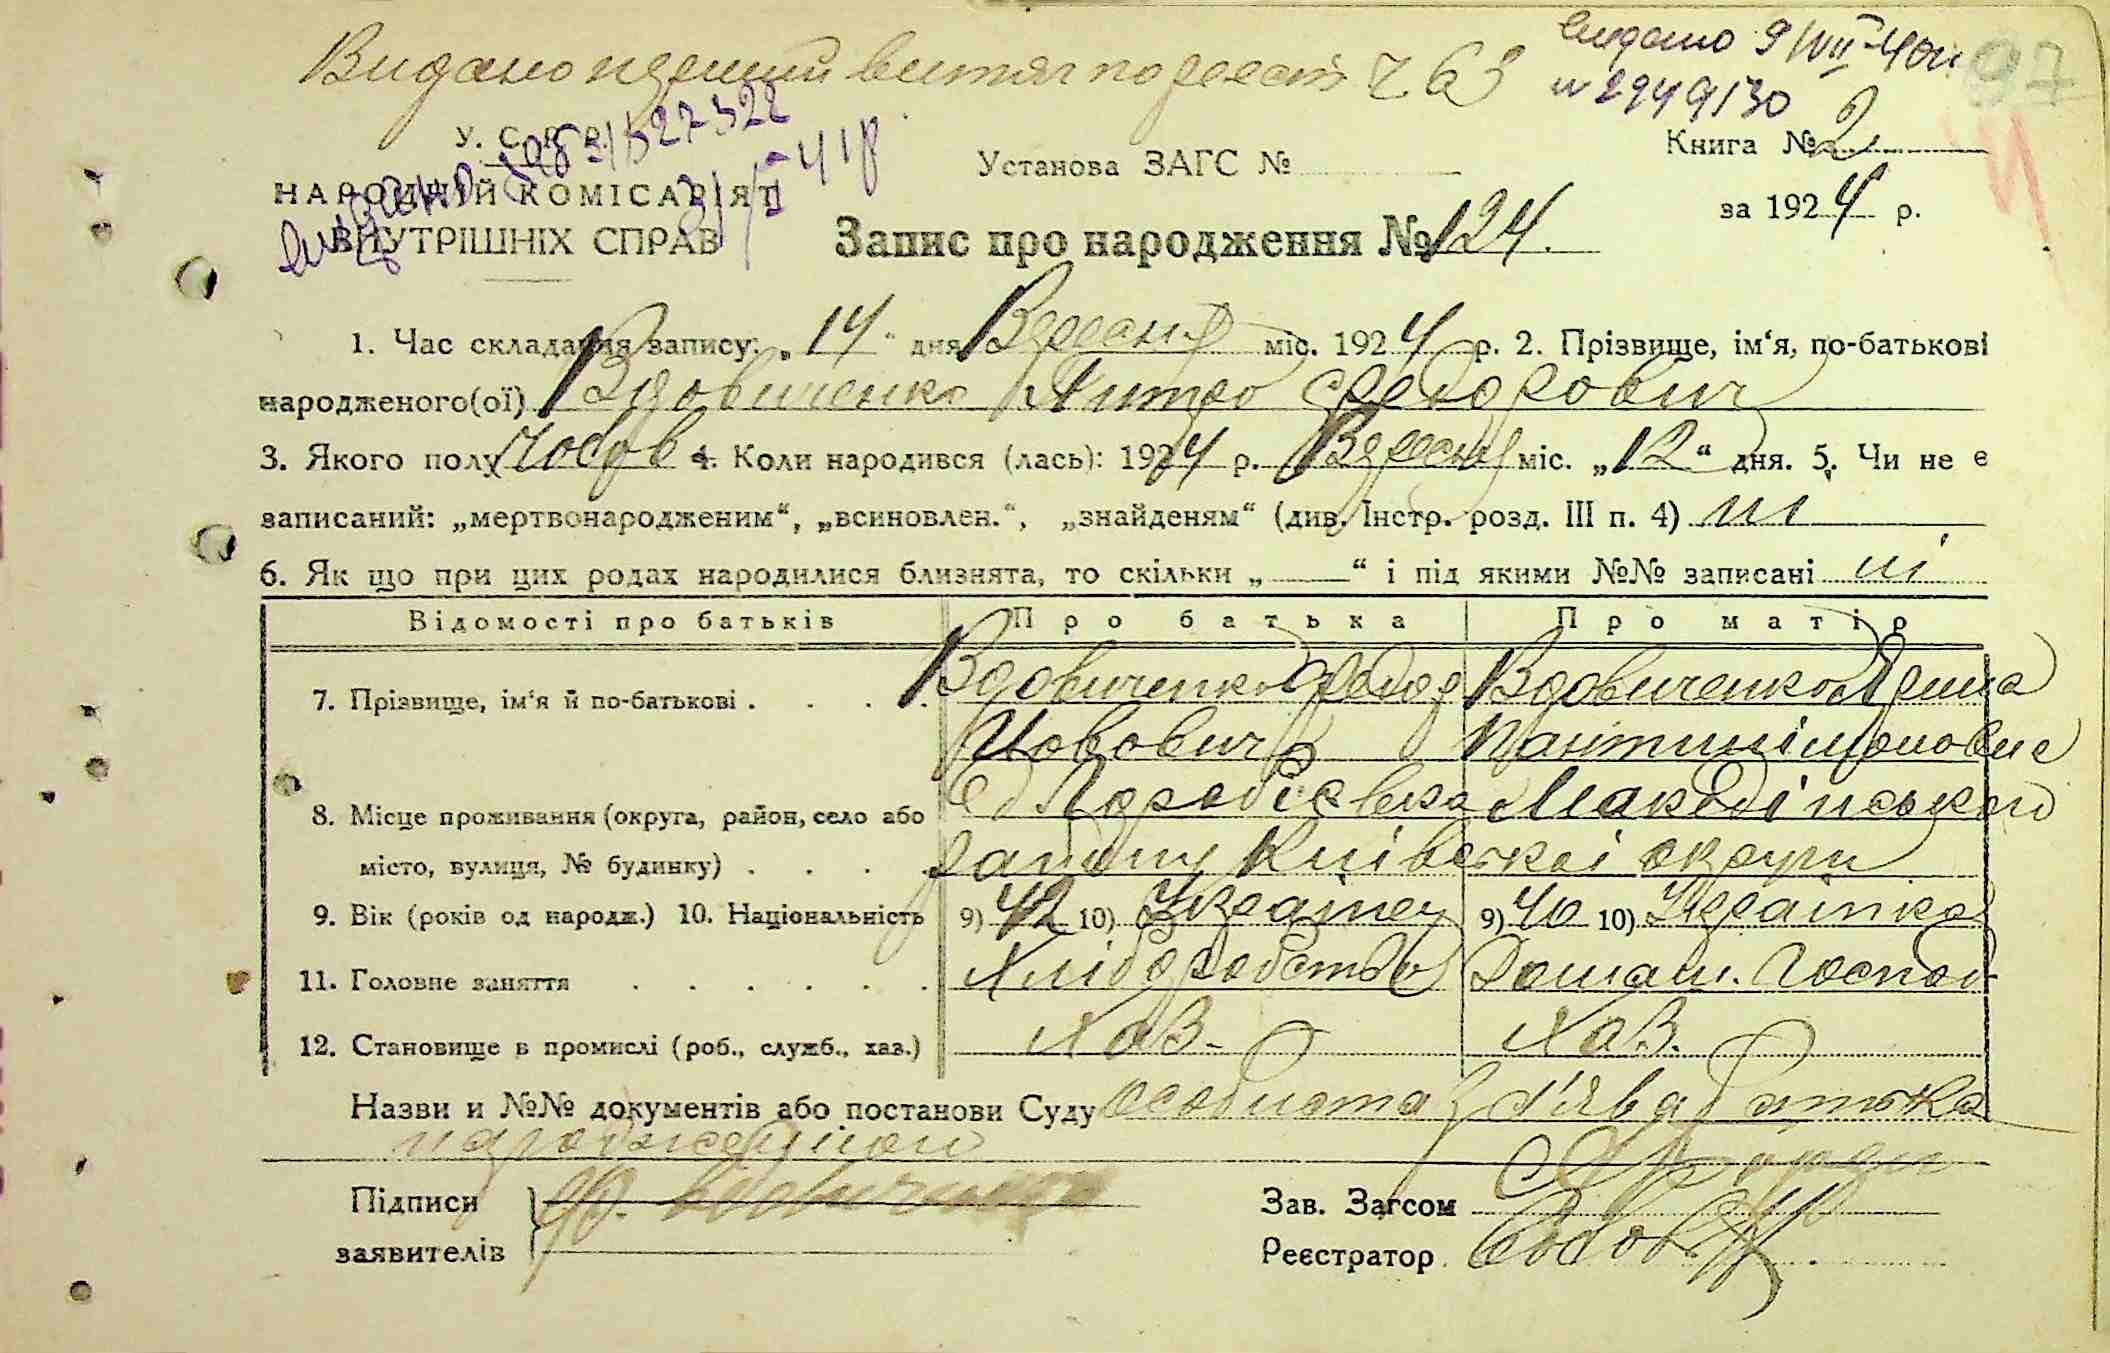 Видано перший витяг по реєст. Ч 63
видано 9/VII-40р.
№ 2949130
97
У. С. Р. Р.
НАРОДНІЙ КОМІСАРІЯТ
ВНУТРІШНІХ СПРАВ
31/I-41р
Установа ЗАГС №
Книга № 2
за 1924 р.
Запис про народження № 124.
1. Час складання запису: „14" дня Вересня міс. 1924 р. 2. Прізвище, ім'я, по-батькові
народженого(ої) Вдовиченко Дмитро Федорович
3. Якого полу Чолов 4. Коли народився (лась): 1924 р. Вересня міс. „12" дня. 5. Чи не є
записаний: „мертвонародженим", „всиновлен.", „знайденям" (див. Інстр. розд. III п. 4) ні
6. Як що при цих родах народилися близнята, то скільки „—" і під якими №№ записані ні
Відомості про батьків Про батька Про матір
7. Прізвище, ім'я й по-батькові . . . . Вдовиченко Федор Вдовиченко Ярина
Йовович Пантилімоновна
8. Місце проживання (округа, район, село або с. Поробієвка Македінського
місто, вулиця, № будинку) . . . . району Київської округи
9. Вік (років од народж.) 10. Національність 9) 42 10) Українец 9) 40 10) Українка
11. Головне заняття . . . . . . Хліборобство Домаш. Господ
12. Становище в промислі (роб., служб., хаз.) Хаз. Хаз.
Назви и №№ документів або постанови Суду особиста з'ява батька
народженого
Підписи Ф. Вдовиченко
заявителів
Зав. Загсом
Реєстратор